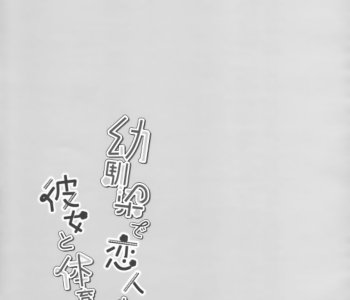 幼馴染で恋人
彼女と体育